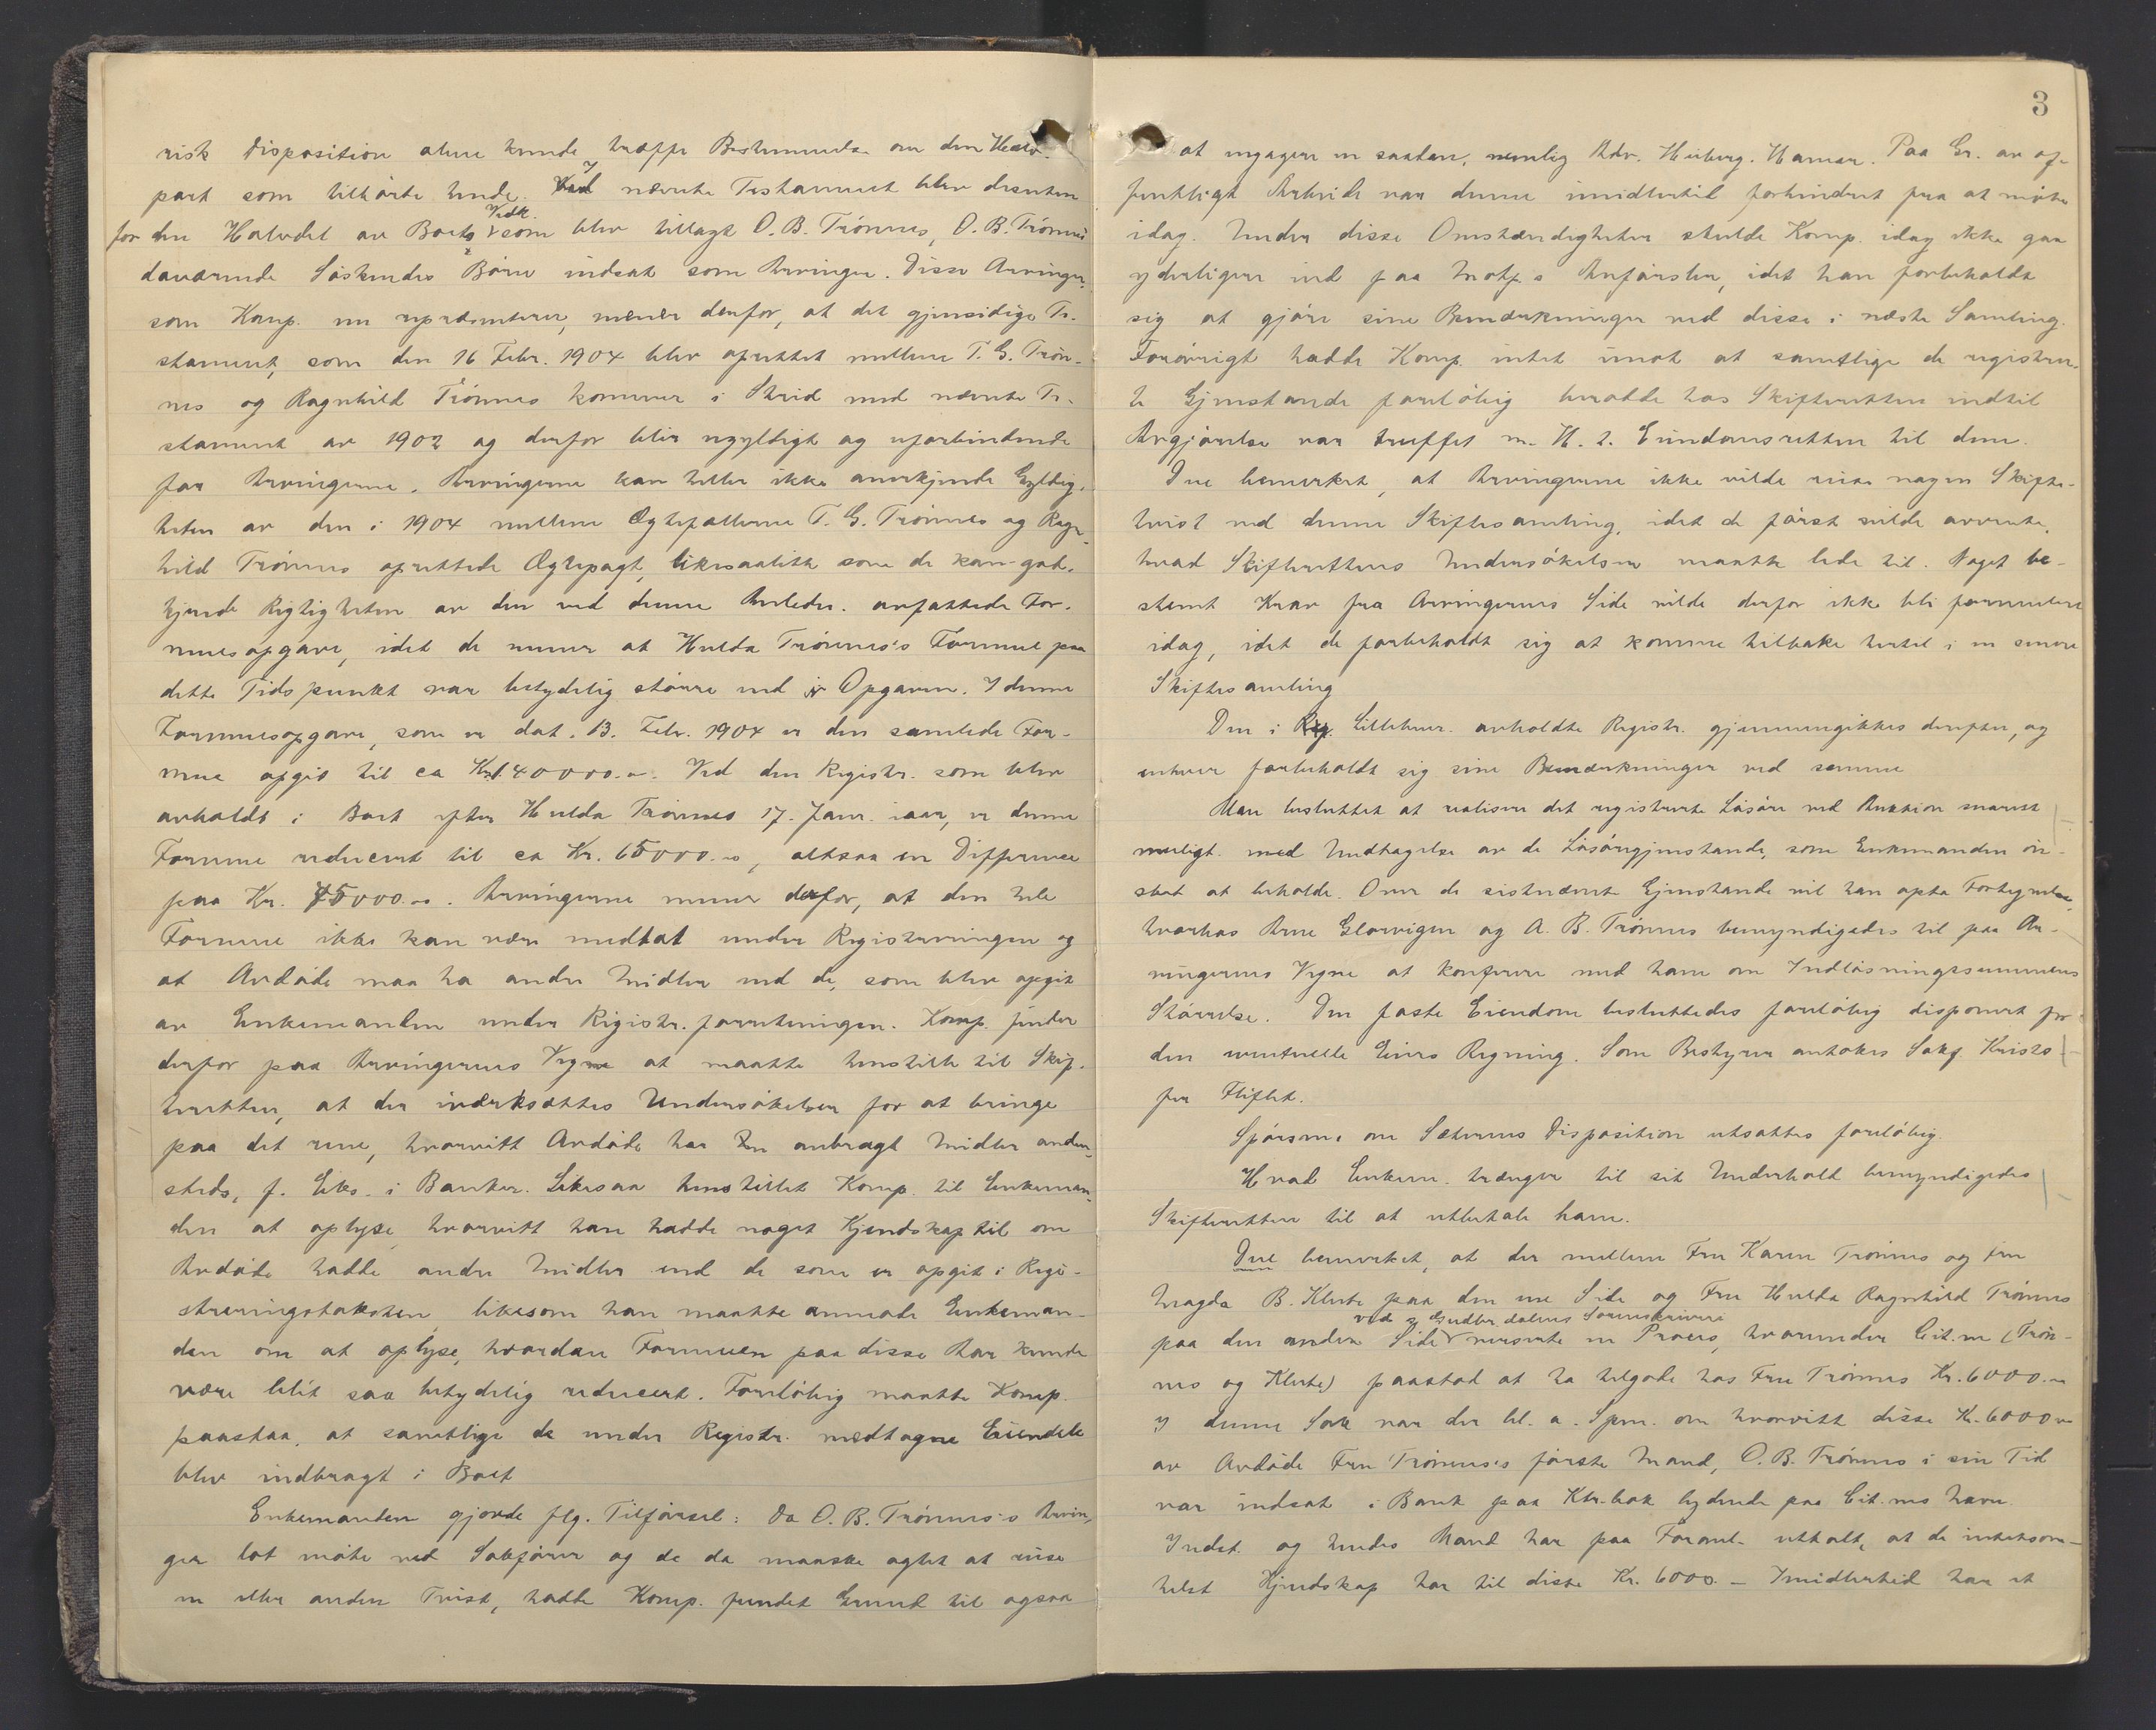 risk Disposition alene kunde træffe Bestemmelse om den Halv-
part som tilhørte hende. I nævnte Testament blev desuten
for den Halvdel av Boets Vedk. som blev tillagt O. B. Trönnes, O. B. Trönnes
daværende Söskendes Børn indsat som Arvinger. Disse Arvinger,
som Komp. nu repræsenterer, mener derfor, at det gjensidige Te-
stament, som den 16 Febr. 1904 blev oprettet mellem T. G. Trön-
nes og Ragnhild Trönnes kommer i Strid med nævnte Te-
stament av 1902 og derfor blir ugyldigt og uforbindende
for Arvingerne. Arvingerne kan heller ikke anerkjende Gyldig-
heten av den i 1904 mellem Ægtefællerne T. G. Trönnes og Ragn-
hild Trönnes oprettede Ægtepagt, likesaalitt som de kan god-
kjende Rigtigheten av den ved denne Anledn. avfattede For-
muesopgave, idet de mener at Hulda Trönnes's Formue paa
dette Tidspunkt var betydelig större end i Opgaven. I denne
Formuesopgave, som er dat. 13. Febr. 1904 er den samlede For-
mue opgit til ca Kr. 140000.00. Ved den Registr. som blev
avholdt i Boet efter Hulda Trönnes 17. Janr. iaar, er denne
Formue reducert til ca Kr. 65000.00, altsaa en Difference
paa Kr. 75000.00. Arvingerne mener derfor, at den hele
Formue ikke kan være medtat under Registreringen og
at Avdöde maa ha andre Midler end de, som blev opgit
av Enkemanden under Registr.forretningen. Komp. finder
derfor paa Arvingernes Vegne at maatte henstille til Skif-
teretten, at der iverksættes Undersökelser for at bringe
paa det rene, hvorvitt Avdöde har anbragt Midler anden-
steds, f. Eks. i Banker. Likesaa henstillet Komp. til Enkeman-
den at oplyse, hvorvitt han hadde noget Kjendskap til om
Avdöde hadde andre Midler end de som er opgit i Regi-
streringstaksten, likesom han maatte anmode Enkeman-
den om at oplyse, hvordan Formuen paa disse Aar kunde
være blit saa betydelig reducert. Foreløbig maatte Komp.
paastaa, at samtlige de under Registr. medtagne Eiendele
blev indbragt i Boet
Enkemanden gjorde flg. Tilförsel: Da O. B. Trönnes's Arvin-
ger lot møte ved Sakförer og de da maaske agtet at reise
en eller anden Tvist, hadde Komp. fundet Grund til ogsaa
3
at engagere en saadan, nemlig Adv. Heiberg. Hamar. Paa Gr. av of-
fentligt Arbeide var denne imidlertid forhindret fra at møte
idag. Under disse Omstændigheter skulde Komp. idag ikke gaa
yderligere ind paa Motp.s Anförsler, idet han forbeholdt
sig at gjöre sine Bemærkninger ved disse i næste Samling.
Forövrigt hadde Komp. intet imot at samtlige de registrer-
te Gjenstande foreløbig berodde hos Skifteretten indtil
Avgjörelse var truffet m. H. t. Eiendomsretten til dem.
Due bemerket, at Arvingerne ikke vilde reise nogen Skifte-
tvist ved denne Skiftesamling, idet de först vilde avvente,
hvad Skifterettens Undersökelser maatte lede til. Noget be-
stemt Krav fra Arvingernes Side vilde derfor ikke bli formulert
idag, idet de forbeholdt sig at komme tilbake hertil i en senere
Skiftesamling
Den i Lillehmr. avholdte Registr. gjennemgikkes derefter, og
enhver forbeholdt sig sine Bemærkninger ved samme
Man besluttet at realisere det registrerte Lösöre ved Auktion snarest
muligt med Undtagelse av de Lösöregjenstande, som Enkemanden ön-
sket at beholde. Over de sistnævnte Gjenstande vil han opta Fortegnelse,
hvorhos Arne Glorvigen og A. B. Trönnes bemyndigedes til paa Ar-
vingernes Vegne at konferere med ham om Indlösningssummens
Störrelse. Den faste Eiendom besluttedes forelöbig disponert for
den eventuelle Eiers Regning. Som Bestyrer antokes Sakf. Kristo-
fer Fliflet.
Spörsm. om Sæterens Disposition utsattes forelöbig.
Hvad Enkem. trænger til sit Underhold bemyndigedes
Skifteretten til at utbetale ham.
Due bemerket, at der mellem Fru Karen Trönnes og Fru
Magda B. Kleve paa den ene Side og Fru Hulda Ragnhild Trönnes
paa den anden Side ved s. Gudbr.dalens Sorenskriveri verserte en Proces, hvorunder Cit.ne (Trön-
nes og Kleve) paastod at ha tilgode hos Fru Trönnes Kr. 6000.00
I denne Sak var der bl. a. Spm. om hvorvitt disse Kr. 6000.00
av Avdöde Fru Trönnes's förste Mand, O. B. Trönnes i sin Tid
var indsat i Bank paa Ktr.bok lydende paa Cit.nes Navn.
Indst. og hendes Mand har paa Foranl. uttalt, at de intetsom-
helst Kjendskap har til disse Kr. 6000. — Imidlertid har et